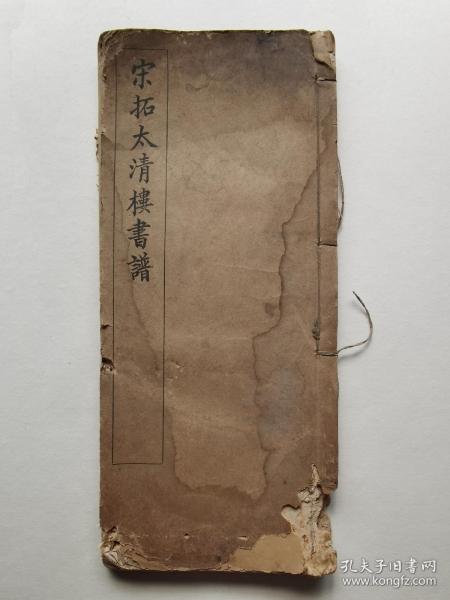 宋拓太清樓書譜
孔夫子旧书网
www.kongfz.com